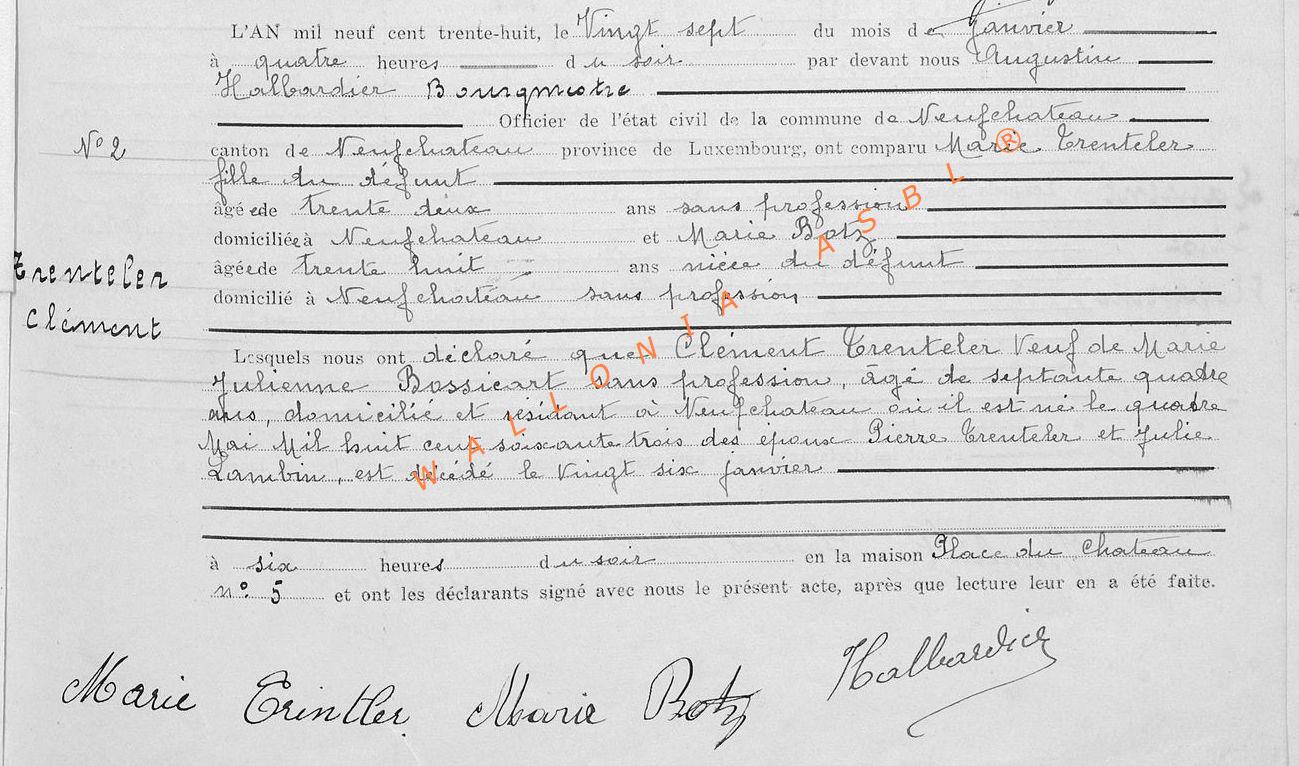 L'AN mil neuf cent trente-huit, le Vingt sept du mois de Janvier
à quatre heures du soir par devant nous Augustin
Halbardier Bourgmestre
Officier de l'état civil de la commune de Neufchateau
N° 2
canton de Neufchateau province de Luxembourg, ont comparu Marie Trenteler
fille du défunt
âgée de trente deux ans sans profession
domiciliée à Neufchateau et Marie Botz
Trenteler
âgée de trente huit ans nièce du défunt
domicilié à Neufchateau sans profession
Clément
Lesquels nous ont déclaré que Clément Trenteler Veuf de Marie
Julienne Bossicart sans profession, âgé de septante quatre
ans, domicilié et résidant à Neufchateau où il est né le quatre
Mai Mil huit cent soixante trois des époux Pierre Trenteler et Julie
Lambin, est décédé le Vingt six janvier
à six heures du soir en la maison Place du Chateau
n° 5 et ont les déclarants signé avec nous le présent acte, après que lecture leur en a été faite.
Marie Trintler Marie Botz Halbardier
WALLONIA ASBL ®